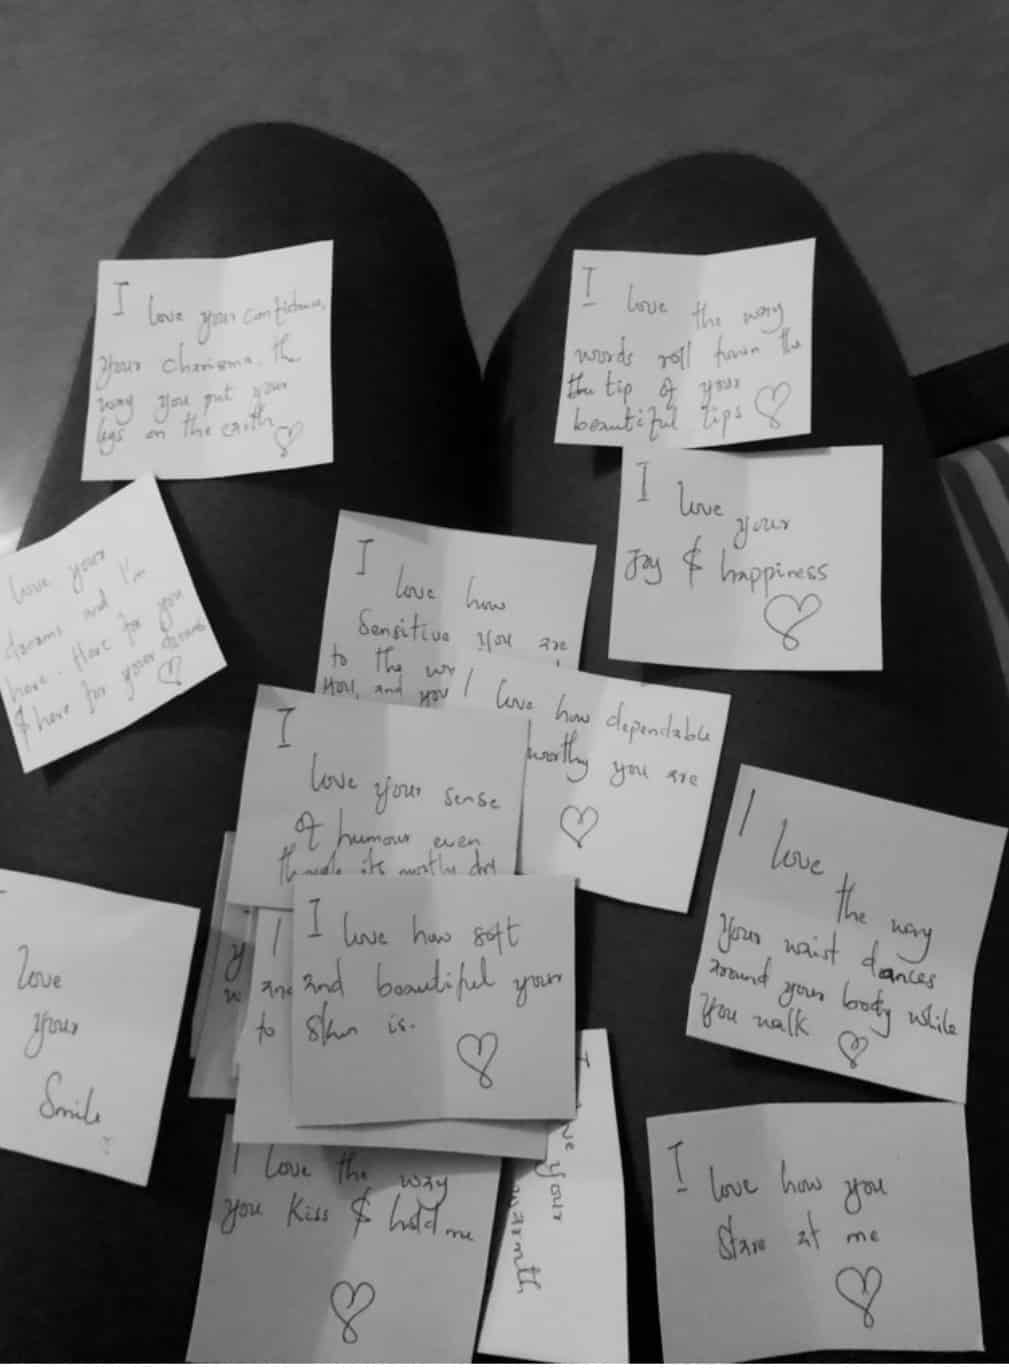 I
love your confidence,
your charisma. the
way you put your
legs on the earth
I
love the way
words roll down the
the tip of your
beautiful lips
I
love your
Joy & happiness
love your
dreams and I'm
here. Here for you
& here for your dreams
I
love how
Sensitive you are
to the
you, and you
I love how dependable
worthy you are
I
love your sense
of humour even
though its mostly dry
I
love the way
your waist dances
around your body while
you walk
love
your
Smile
I love how soft
and beautiful your
skin is.
I
and
to
I love the way
you kiss & hold me
your
warmth
I
love how you
stare at me